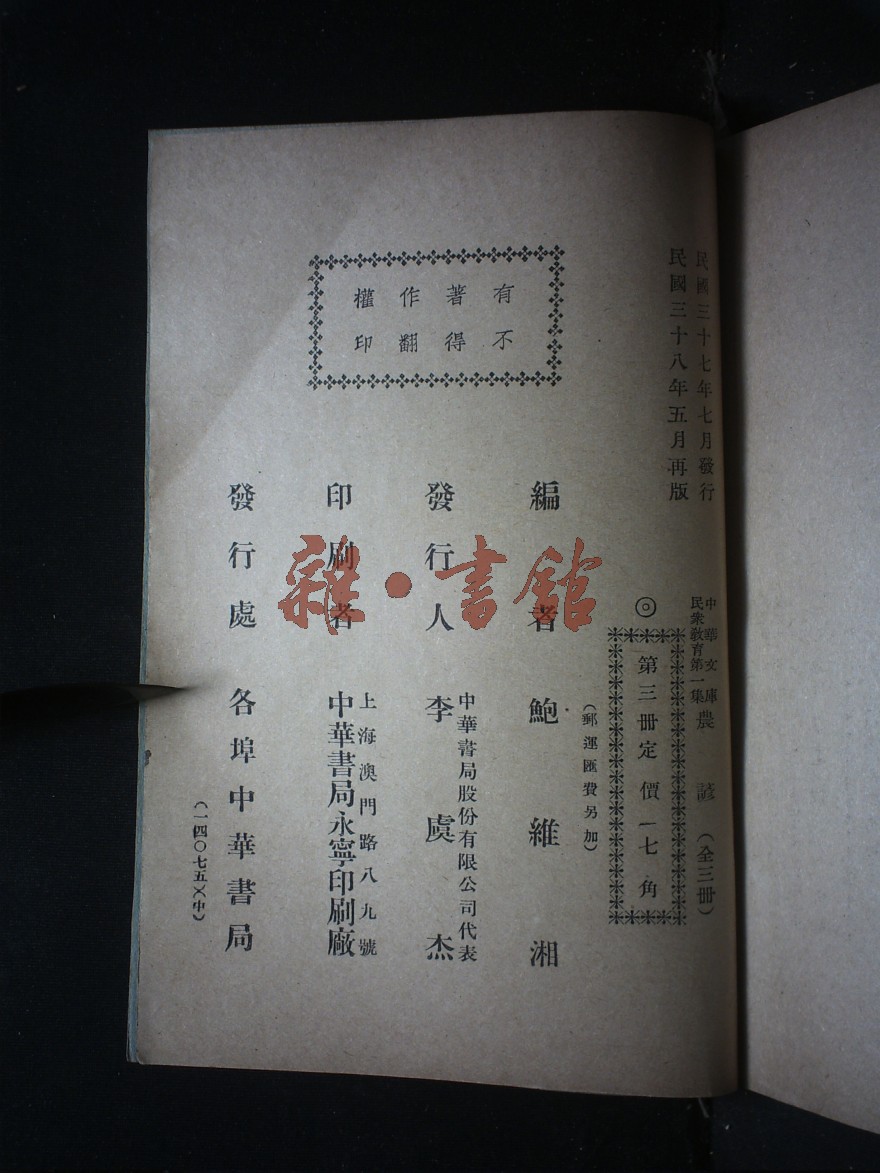 民國三十七年七月發行
民國三十八年五月再版
中華文庫
民眾教育第一集
農諺（全三冊）
◎
第三冊定價一七角
（郵運匯費另加）
有著作權
不得翻印
編者 鮑維湘
發行人 李虞杰
中華書局股份有限公司代表
印刷者
上海澳門路八九號
中華書局永寧印刷廠
發行處 各埠中華書局
（一四〇七五）（中）
雜·書館